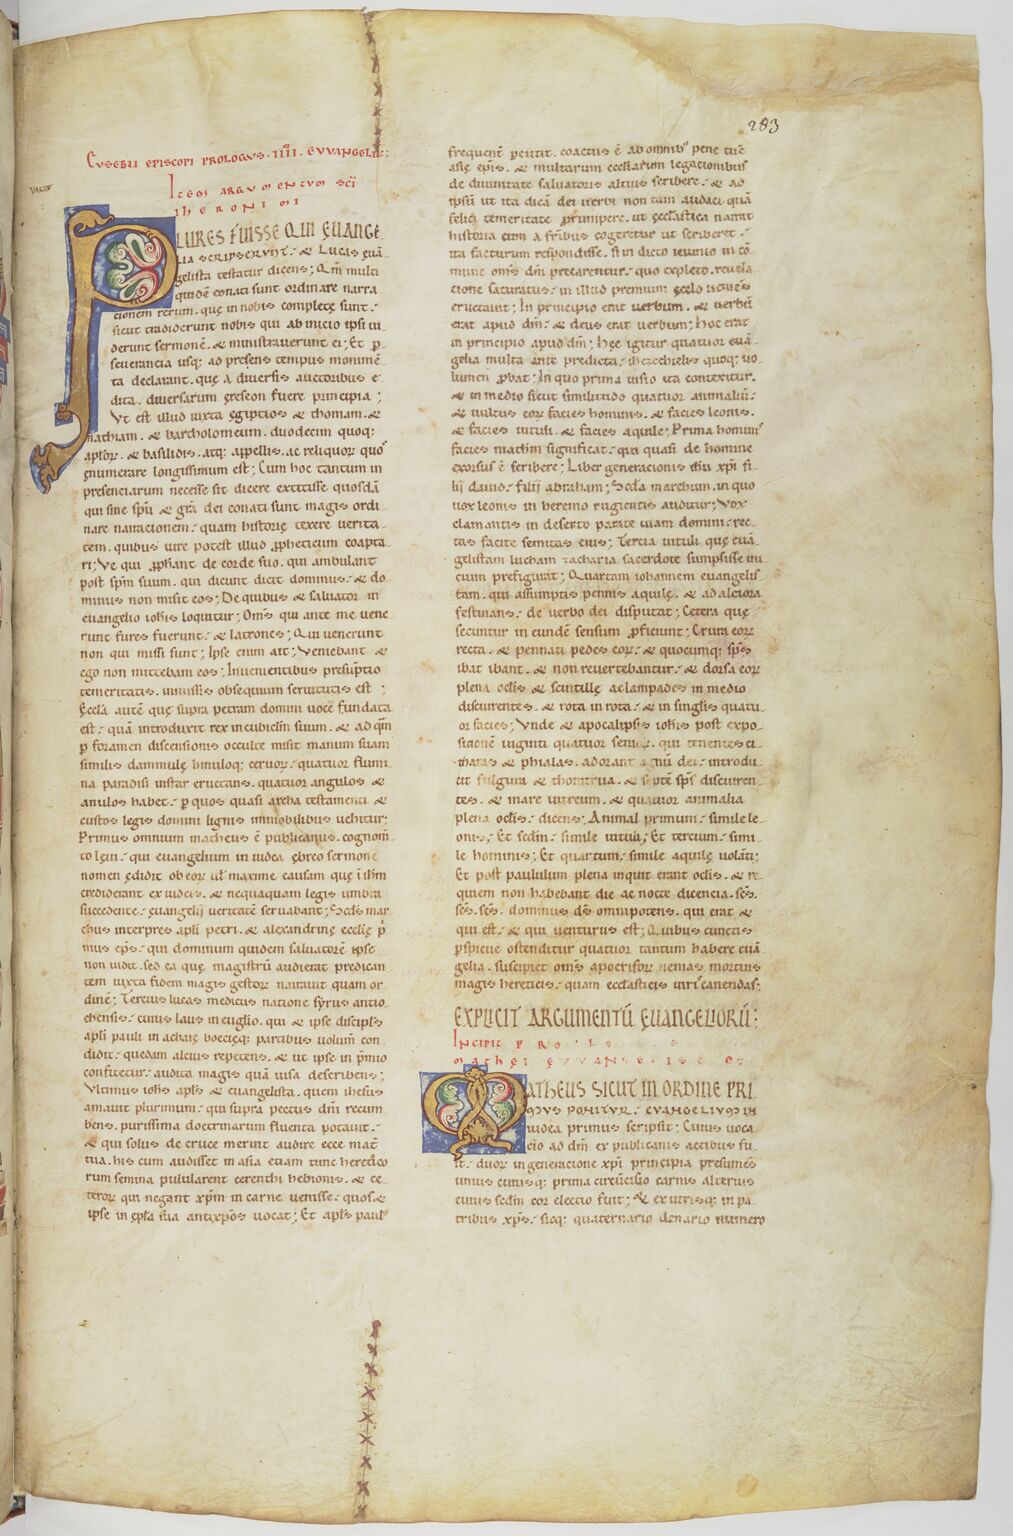 283
EUSEBII EPISCOPI PROLOGUS . IIII . EUUANGELII:
ITEM ARGUMENTUM SCI
IHERONIMI
PLURES FUISSE QUI EUANGE
LIA SCRIPSERUNT. & Lucas euã
gelista testatur dicens; Qm̃ multi
quidẽ conati sunt ordinare narra
cionem rerum. que in nobis complete sunt.
sicut tradiderunt nobis qui ab inicio ipsi ui
derunt sermonẽ. & ministrauerunt ei; Et p
seuerancia usq; ad presens tempus monimẽ
ta declarant. quę a diuersis auctoribus e
dita. diuersarum ereseon fuere principia;
Ut est illud iuxta egiptios & thomam. &
mathiam. & bartholomeum. duodecim quoq;
aplor̃. & basilidis. atq; appellis. ac reliquor quo
enumerare longissimum est; Cum hoc tantum in
presenciarum necesse sit dicere extitisse quosdã
qui sine sp̃u & gr̃a dei conati sunt magis ordi
nare narracionem. quam historię texere uerita
tem. quibus iure potest illud ppheticum coapta
ri; Ve qui pphant de corde suo. qui ambulant
post sp̃m suum. qui dicunt dicit dominus. & do
minus non misit eos; De quibus & saluator in
euangelio ioh̃is loquitur; Om̃s qui ante me uene
runt fures fuerunt. & latrones; Qui uenerunt
non qui missi sunt; Ipse enim ait; Veniebant &
ego non mittebam eos; In uenientibus presũptio
temeritatis. in missis obsequium seruitutis est;
Eccl̃a autẽ quę supra petram domini uocẽ fundata
est. quã introduxit rex in cubiclm̃ suum. & ad qm̃
p foramen discensionis occulte misit manum suam
similis dammulę hinuloq; ceruor. quatuor flumi
na paradisi instar eructans. quatuor angulos &
anulos habet. p quos quasi archa testamenti &
custos legis domini lignis immobilibus uehitur;
Primus omnium matheus ẽ publicanus. cognom̃
to leui. qui euangelium in iudea ebreo sermone
nomen edidit ob eor ul maxime causam que ĩ ihm̃
crediderant ex iudeis. & nequaquam legis umbra
succedente. euangelii ueritatẽ seruabant; Scd̃s mar
chus interpres apl̃i petri. & alexandrine ecclie p
mus ep̃s. qui dominum quidem saluatorẽ ipse
non uidit. sed ea quę magistrũ audierat predican
tem iuxta fidem magis gestor narrauit quam or
dinẽ; Tercius lucas medicus natione syrus antio
chensis. cuius laus in euglio. qui & ipse discipls
apl̃i pauli in achaie boecieq; partibus uolum̃ con
didit. quedam alcius repetens. & ut ipse in p̃mio
confitetur. audita magis quã uisa describens;
Vltimus ioh̃s apl̃s & euangelista. quem ihesus
amauit plurimum. qui supra pectus dñi recum
bens. purissima doctrinarum fluenta potauit.
& qui solus de cruce meruit audire ecce mat̃
tua. his cum audisset in asia etiam tunc heretico
rum semina pululare cerenthi hebionis. & ce
teror qui negant xp̃m in carne uenisse. quos &
ipse in ep̃la sua antixp̃os uocat; Et apl̃s paul
frequent̃ pcutit. coactus ẽ ab omnib pene tũc
asie ep̃is. & multarum eccliarum legacionibus
de diuinitate saluatoris altius scribere. & ad
ipsũ ut ita dicã dei uerbi non tam audaci quã
felici temeritate prumpere. ut ecclastica narrat
historia cum a fribus cogeretur ut scriberet.
ita facturum respondisse. si in dicto ieiunio in cõ
mune om̃s dm̃ precarentur. quo expleto. reuela
cione saturatus. in illud premium celo ueniens
eructauit; In principio erat uerbum. & uerbũ
erat apud dm̃. & deus erat uerbum; hoc erat
in principio apud dm̃; hęc igitur quatuor euã
gelia multa ante predicta. hiezechielis quoq; uo
lumen pbat; In quo prima uisio ita contexitur.
& in medio sicut similitudo quatuor animaliũ.
& uultus eor facies hominis. & facies leonis.
& facies uituli. & facies aquile; Prima hominis
facies mathm̃ significat. qui quasi de homine
exorsus ẽ scribere; Liber generacionis ihu xp̃i fi
lii dauid. filii abraham; Scd̃a marchum. in quo
uox leonis in heremo rugientis auditur; Vox
clamantis in deserto parate uiam domini. rec
tas facite semitas eius; Tercia uituli quę euã
gelistam lucham zacharia sacerdote sumpsisse ini
cium prefigurat; Quartam iohannem euangelis
tam. qui assumptis pennis aquilę. & ad alciora
festinans. de uerbo dei disputat; Cetera quę
secuntur in eundẽ sensum pficiunt; Crura eor
recta. & pennati pedes eor. & quocumq; sp̃s
ibat ibant. & non reuertebantur. & dorsa eor
plena oclis & scintillę ac lampades in medio
discurrentes. & rota in rota. & in singlis quatu
or facies; Vnde & apocalipsis ioh̃is post expo
sitionẽ uiginti quatuor senior. qui tenentes ci
tharas & phialas. adorant agnũ dei. introdu
cit fulgura & thonitrua. & septẽ sp̃s discurren
tes. & mare uitreum. & quatuor animalia
plena oclis. dicens; Animal primum. simile le
oni. Et sedm̃. simile uituli; Et tercium. simi
le hominis; Et quartum. simile aquile uolãti;
Et post paululum plena inquit erant oclis. & re
quiem non habebant die ac nocte dicencia. sc̃s.
sc̃s. sc̃s. dominus ds̃ omnipotens. qui erat &
qui est. & qui uenturus est; Quibus cunctis
pspicue ostenditur quatuor tantum habere euã
gelia. suscipiet om̃s apocrifor nenias mortuis
magis hereticis. quam ecclasticis uiris canendas;
EXPLICIT ARGUMENTŨ EUANGELIORŨ;
MATHEUS SICUT IN ORDINE PRI
MUS PONITUR. EUANGELIUM IN
iudea primus scripsit; Cuius uoca
cio ad dm̃ ex publicanis actibus fu
it. duor in generacione xp̃i principia presumẽs
unius cuiusq; prima circũcisio carnis alterius
cuius sedm̃ cor electio fuit; & ex utrisq; in pa
tribus xp̃s. sicq; quaternario denario numero